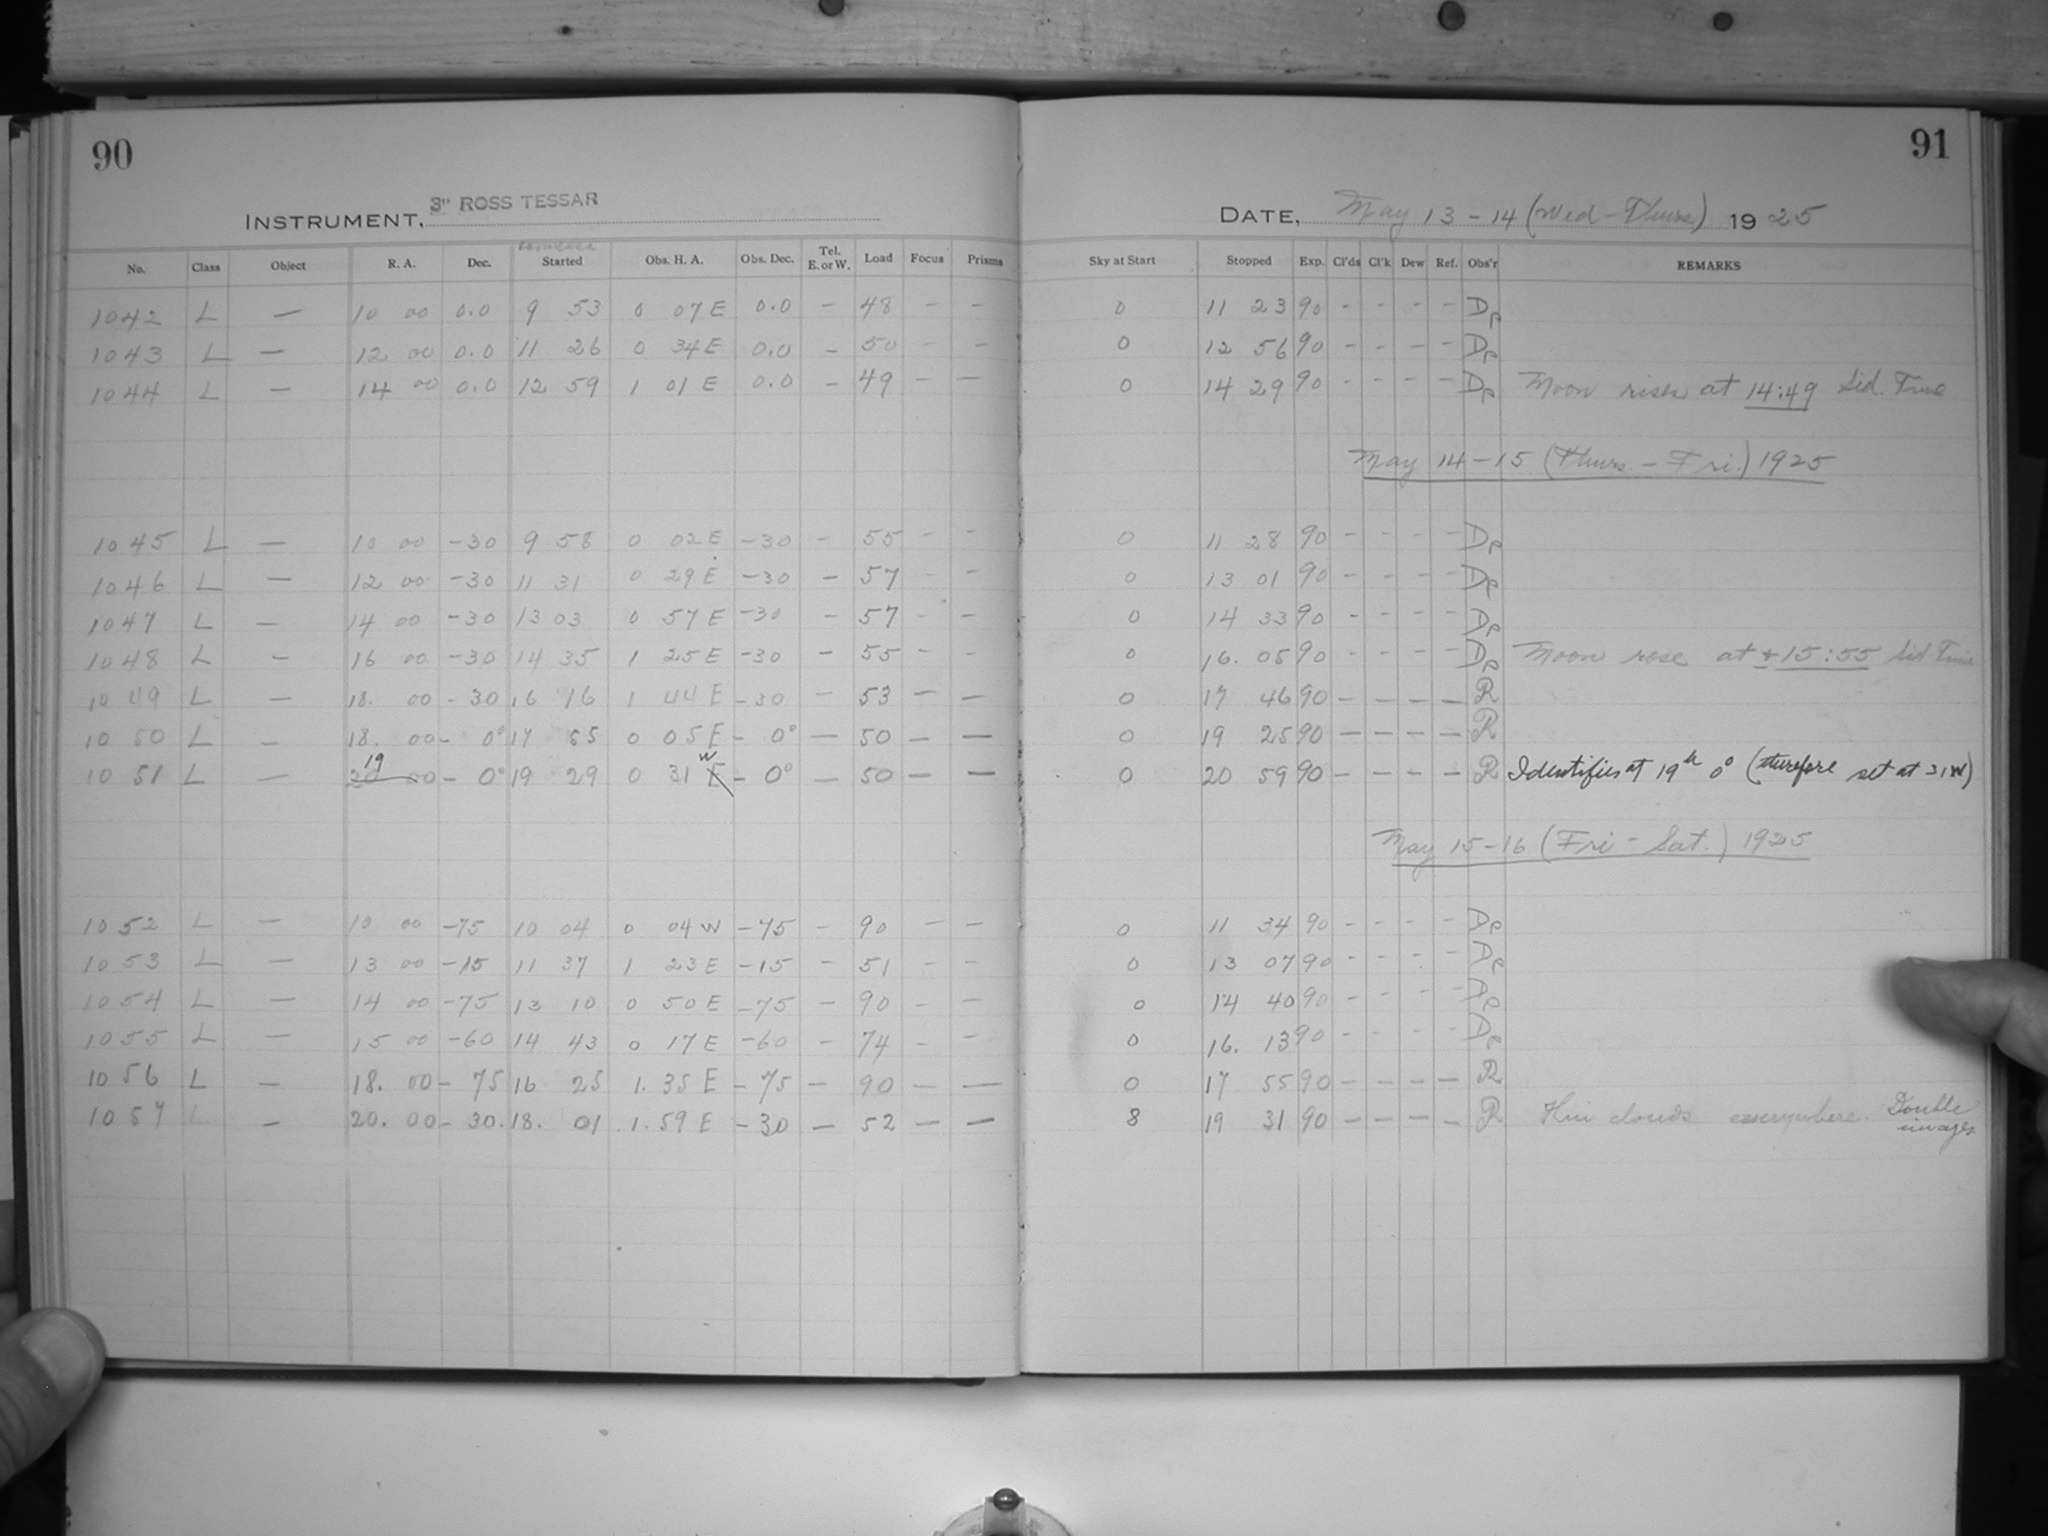 90
91
INSTRUMENT, 3" ROSS TESSAR
DATE, May 13-14 (Wed-Thurs) 1925
No. Class Object R. A. Dec. Started Obs. H. A. Obs. Dec. Tel. E. or W. Load Focus Prisms Sky at Start Stopped Exp. Cl'ds Cl'k Dew Ref. Obs'r REMARKS
1042 L — 10 00 0.0 9 53 0 07 E 0.0 - 48 - - 0 11 23 90 - - - - Dp
1043 L — 12 00 0.0 11 26 0 34 E 0.0 - 50 - - 0 12 56 90 - - - - Dp
1044 L — 14 00 0.0 12 59 1 01 E 0.0 - 49 - - 0 14 29 90 - - - - Dp Moon rises at 14:49 Sid. Time
May 14-15 (Thurs.-Fri.) 1925
1045 L — 10 00 -30 9 58 0 02 E -30 - 55 - - 0 11 28 90 - - - - Dp
1046 L — 12 00 -30 11 31 0 29 E -30 - 57 - - 0 13 01 90 - - - - Dp
1047 L — 14 00 -30 13 03 0 57 E -30 - 57 - - 0 14 33 90 - - - - Dp
1048 L — 16 00 -30 14 35 1 25 E -30 - 55 - - 0 16. 05 90 - - - - Dp Moon rose at 15:55 Sid Time
1049 L — 18. 00 -30 16 16 1 44 E -30 - 53 - - 0 17 46 90 - - - - R
1050 L — 18. 00 - 0° 17 55 0 05 E - 0° - 50 - - 0 19 25 90 - - - - R
1051 L 19 20 00 - 0° 19 29 0 31 W E - 0° - 50 - - 0 20 59 90 - - - - R Identifies at 19h 0° (therefore set at 31W)
May 15-16 (Fri-Sat.) 1925
1052 L — 10 00 -75 10 04 0 04 W -75 - 90 - - 0 11 34 90 - - - - Dp
1053 L — 13 00 -15 11 37 1 23 E -15 - 51 - - 0 13 07 90 - - - - Dp
1054 L — 14 00 -75 13 10 0 50 E -75 - 90 - - 0 14 40 90 - - - - Dp
1055 L — 15 00 -60 14 43 0 17 E -60 - 74 - - 0 16. 13 90 - - - - Dp
1056 L — 18. 00 - 75 16 25 1. 35 E - 75 - 90 - - 0 17 55 90 - - - - R
1057 L — 20. 00 - 30. 18. 01 1. 59 E - 30 - 52 - - 8 19 31 90 - - - - R Thin clouds everywhere. Double images